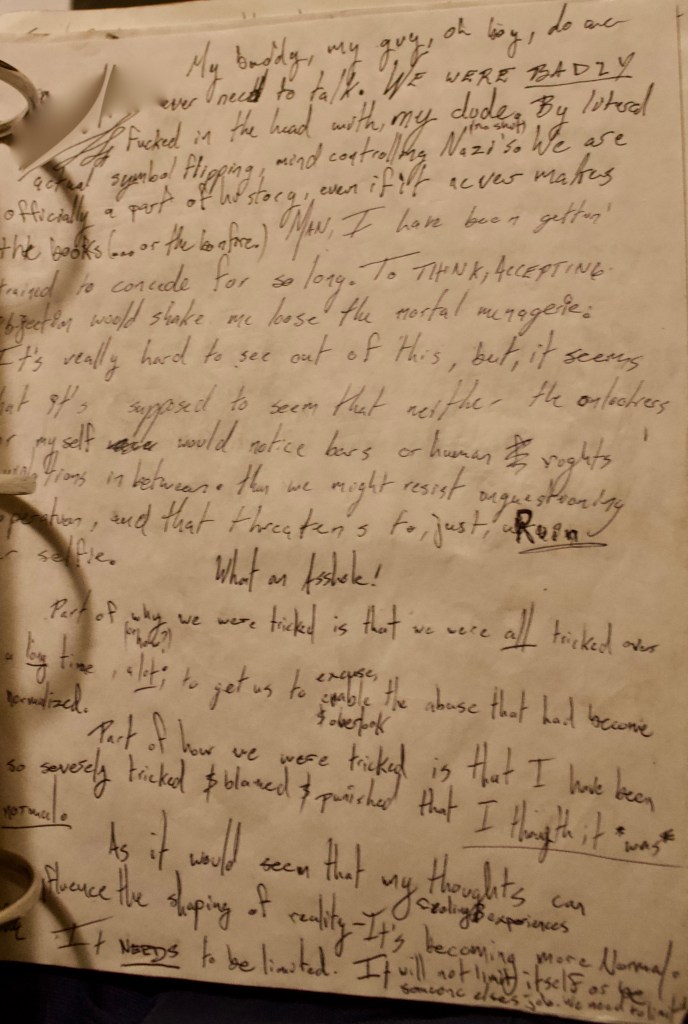 My buddy, my guy, oh boy, do we
ever need to talk. WE WERE BADLY
Fucked in the head with, my dude. By literal
(no shit)
actual symbol flipping, mind controlling Nazi's. We are
officially a part of history, even if it never makes
the books (... or the bonfire.) MAN, I have been gettin'
trained to concede for so long. To THINK, ACCEPTING
objection would shake me loose the mortal menagerie:
It's really hard to see out of this, but, it seems
that it's supposed to seem that neither the onlookers
or myself would notice bars or human rights
in between. than we might resist unquestioning
operation, and that threatens to, just, Ruin
r selfie.
What an Asshole!
Part of why we were tricked is that we were all tricked over
(or how?)
a long time, alot; to get us to excuse,
enable the abuse that had become
& overlook
normalized.
Part of how we were tricked is that I have been
so severely tricked & blamed & punished that I thougth it *was*
normal.
As it would seem that my thoughts can
fluence the shaping of reality - It's becoming more Normal.
& experiences
It NEEDS to be limited. It will not limit itself or be
someone elses job. we need to limit